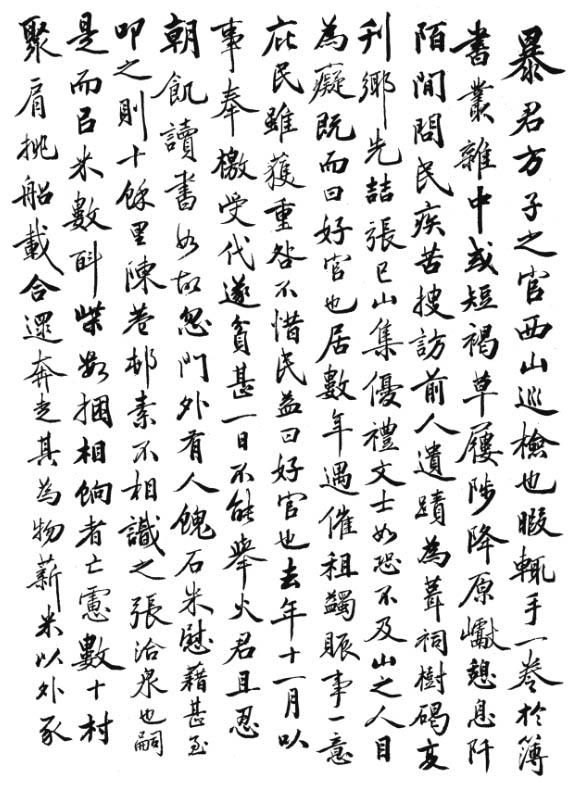 暴君方子之官西山巡檢也暇輒手一卷於簿
書叢雜中或短褐草屨陟降原巘憩息阡
陌閒問民疾苦搜訪前人遺蹟為葺祠樹碣
刊鄉先喆張巳山集優禮文士如恐不及山之人目
為癡既而曰好官也居數年遇催租蠲賑事一意
庇民雖獲重咎不惜民益曰好官也去年十一月以
事奉檄受代遂貧甚一日不能舉火君且忍
朝飢讀書如故忽門外有人餽石米慰藉甚至
叩之則十餘里陳巷邨素不相識之張洽泉也嗣
是而㠯米數斛柴數捆相餉者亡慮數十村
聚肩挑船載合遝奔走其為物薪米以外豕